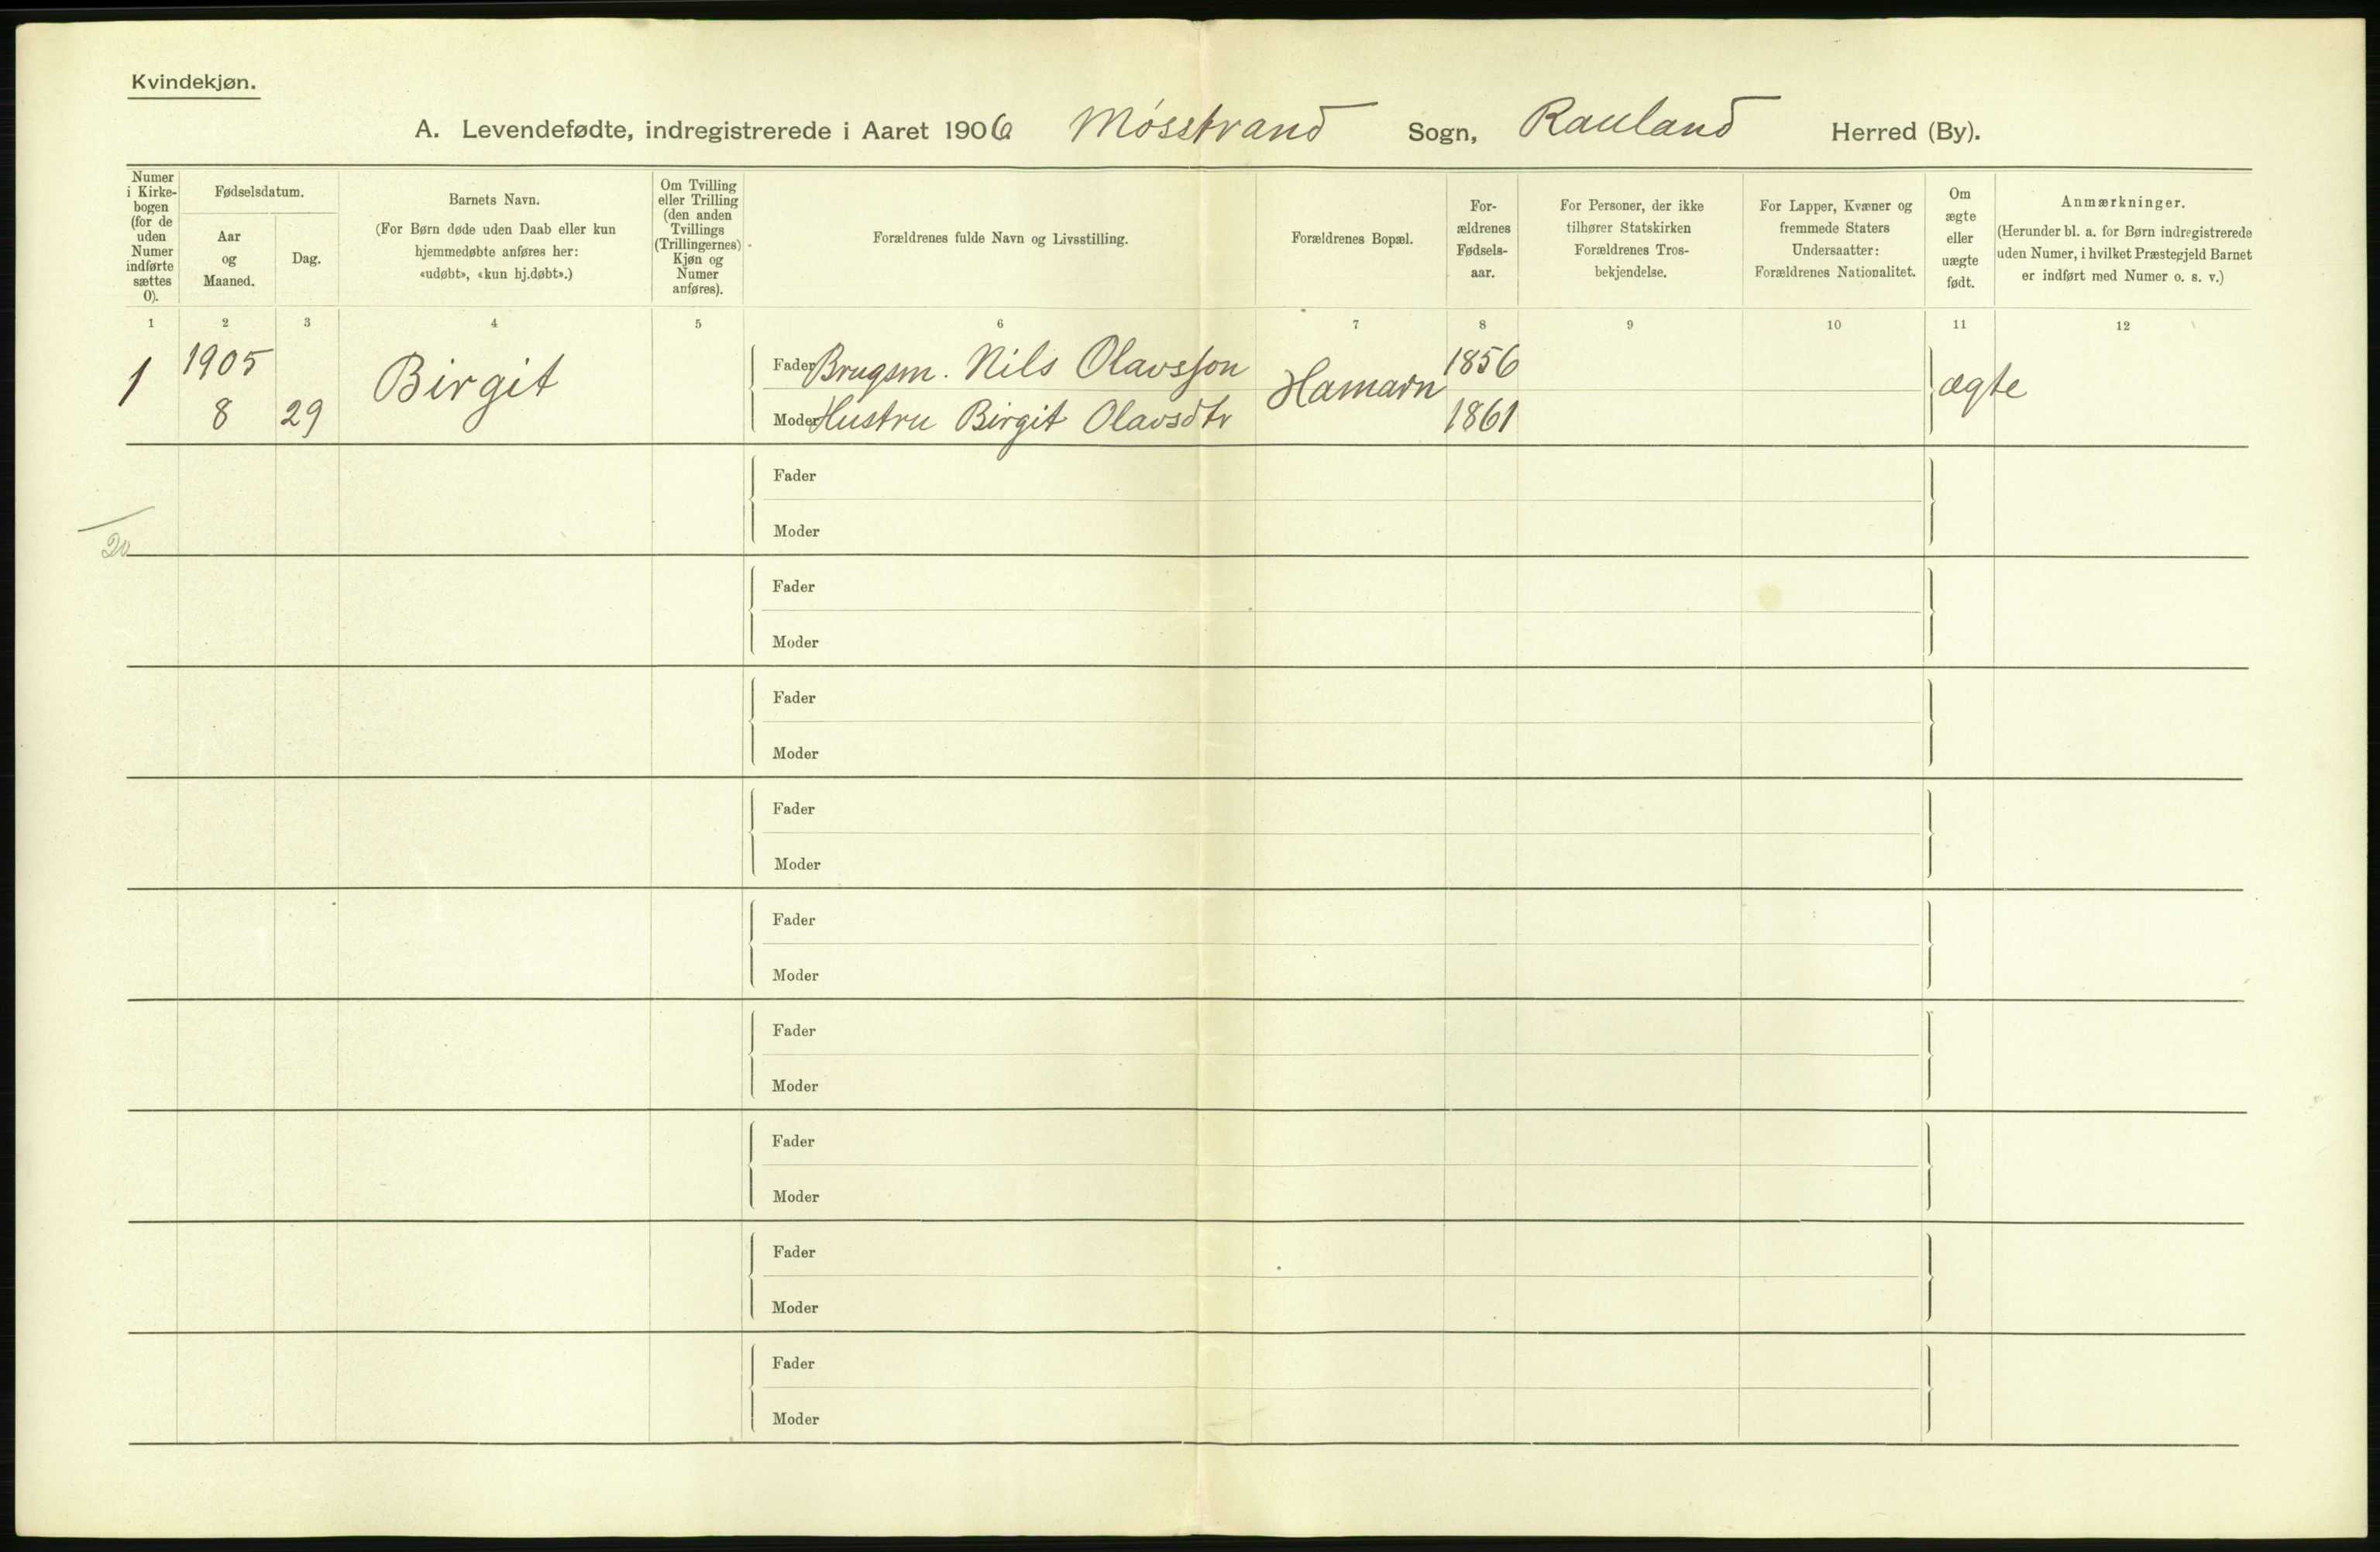 Kvindekjøn.
A. Levendefødte, indregistrerede i Aaret 1906 Mósstrand Sogn, Rauland Herred (By).
Numer
i Kirke-
bogen
(for de
uden
Numer
indførte
sættes
0).
Fødselsdatum.
Aar
og
Maaned.
Dag.
Barnets Navn.
(For Børn døde uden Daab eller kun
hjemmedøbte anføres her:
«udøbt», «kun hj.døbt».)
Om Tvilling
eller Trilling
(den anden
Tvillings
(Trillingernes)
Kjøn og
Numer
anføres).
Forældrenes fulde Navn og Livsstilling.
Forældrenes Bopæl.
For-
ældrenes
Fødsels-
aar.
For Personer, der ikke
tilhører Statskirken
Forældrenes Tros-
bekjendelse.
For Lapper, Kvæner og
fremmede Staters
Undersaatter:
Forældrenes Nationalitet.
Om
ægte
eller
uægte
født.
Anmærkninger.
(Herunder bl. a. for Børn indregistrerede
uden Numer, i hvilket Præstegjeld Barnet
er indført med Numer o. s. v.)
1 2 3 4 5 6 7 8 9 10 11 12
1 1905 8 29 Birgit
Fader Brugsm. Nils Olavsson
Moder Hustru Birgit Olavsdtr
Hamarn
1856
1861
ægte
Fader
Moder
20
Fader
Moder
Fader
Moder
Fader
Moder
Fader
Moder
Fader
Moder
Fader
Moder
Fader
Moder
Fader
Moder